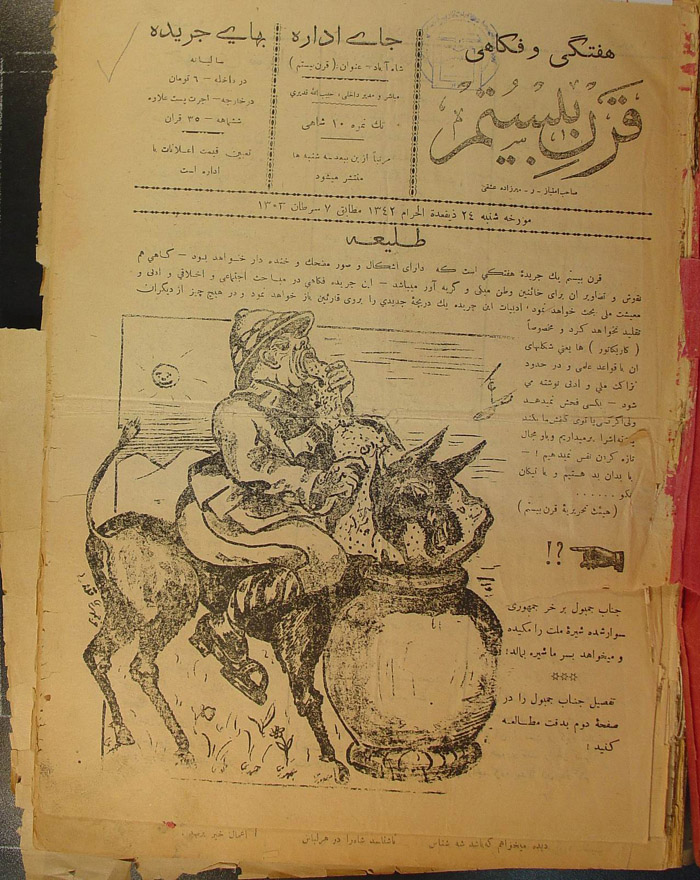 هفتگی و فکاهی
قرن بیستم
صاحب امتیاز - ر - میرزاده عشقی
جای اداره
شاه آباد - عنوان: (قرن بیستم)
مباشر و مدیر داخلی: حبیب‌الله قدیری
تک نمره ۱۰ شاهی
مرتباً از این ببعد سه شنبه ها
منتشر میشود
بهای جریده
سالیانه
در داخله - ۶ تومان
در خارجه - اجرت پست علاوه
ششماهه - ۳۵ قران
تعیین قیمت اعلانات با
اداره است
مورخه شنبه ۲۴ ذیقعدة الحرام ۱۳۴۲ مطابق ۷ سرطان ۱۳۰۳
طلیعه
قرن بیستم یک جریدهٔ هفتگی است که دارای اشکال و صور مضحک و خنده دار خواهد بود - گاهی هم
نقوش و تصاویر آن برای خائنین وطن مبکی و گریه آور میباشد - این جریده فکاهی در مباحث اجتماعی و اخلاقی و ادبی و
معیشت ملی بحث خواهد نمود، ادبیات این جریده یک دریچهٔ جدیدی را بروی قارئین باز خواهد نمود و در هیچ چیز از دیگران
تقلید نخواهد کرد و مخصوصاً
(کاریکاتور) ها یعنی شکلهای
آن با قواعد علمی و در حدود
نزاکت ملی و ادبی نوشته می
شود - بکسی فحش نمیدهد
ولی اگر کسی پا توی کفش ما بکند
برمیداریم و باو مجال
تازه کردن نفس نمیدهیم! -
با بدان بد هستیم و با نیکان
نکو ......
(هیئت تحریریهٔ قرن بیستم)
!?
جناب جمبول بر خر جمهوری
سوار شده شیرهٔ ملت را مکیده
و میخواهد بسر ما شیره بمالد!
***
تفصیل جناب جمبول را در
صفحهٔ دوم بدقت مطالعه
کنید!
دیده میخواهم که باشد شه شناس
تا شناسد شاه را در هر لباس